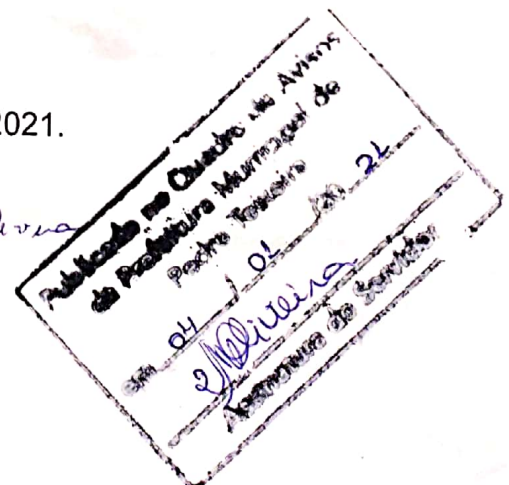 2021.
Publicado no Quadro de Avisos
da Prefeitura Municipal de
Pedro Teixeira
em 04 / 01 / 20 21
Oliveira
Assinatura do Servidor